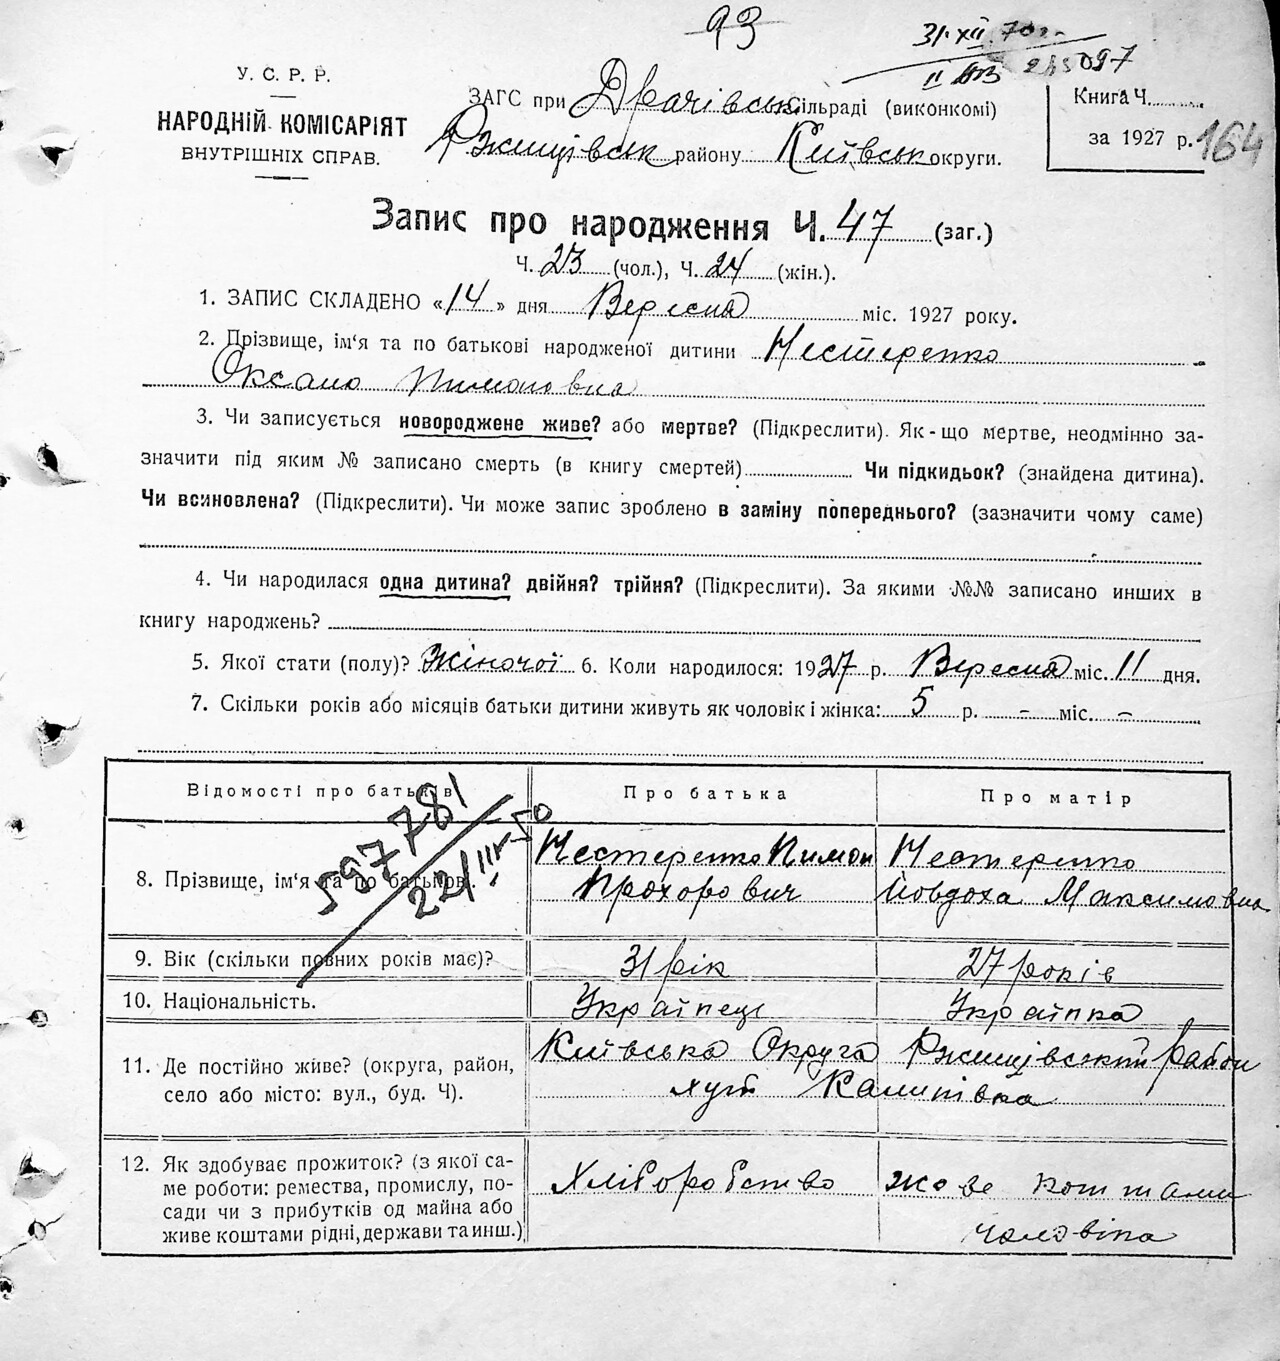 93
31.XII.70 г.
II АЮ 245097
У. С. Р. Р.
НАРОДНІЙ КОМІСАРІЯТ
ВНУТРІШНІХ СПРАВ.
ЗАГС при Драчівськ сільраді (виконкомі)
Ржищівськ району Київськ округи.
Книга Ч.
за 1927 р.
164
Запис про народження Ч. 47 (заг.)
Ч. 23 (чол.), Ч. 24 (жін.).
1. ЗАПИС СКЛАДЕНО «14» дня Вересня міс. 1927 року.
2. Прізвище, ім‘я та по батькові народженої дитини Нестеренко
Оксана Пимоновна
3. Чи записується новороджене живе? або мертве? (Підкреслити). Як-що мертве, неодмінно за-
значити під яким № записано смерть (в книгу смертей) Чи підкидьок? (знайдена дитина).
Чи всиновлена? (Підкреслити). Чи може запис зроблено в заміну попереднього? (зазначити чому саме)
4. Чи народилася одна дитина? двійня? трійня? (Підкреслити). За якими №№ записано инших в
книгу народжень?
5. Якої стати (полу)? Жіночої 6. Коли народилося: 1927 р. Вересня міс. 11 дня.
7. Скільки років або місяців батьки дитини живуть як чоловік і жінка: 5 р. – міс. –
Відомості про батьків
Про батька
Про матір
597781
22/III-50
8. Прізвище, ім‘я та по батькові.
Нестеренко Пимон
Прохорович
Нестеренко
Йовдоха Максимовна
9. Вік (скільки повних років має)?
31 рік
27 років
10. Національність.
Українець
Українка
11. Де постійно живе? (округа, район,
село або місто: вул., буд. Ч).
Київська Округа Ржищівський район
хут Калинівка
12. Як здобуває прожиток? (з якої са-
ме роботи: ремества, промислу, по-
сади чи з прибутків од майна або
живе коштами рідні, держави та инш.)
Хліборобство
живе коштами
чоловіка